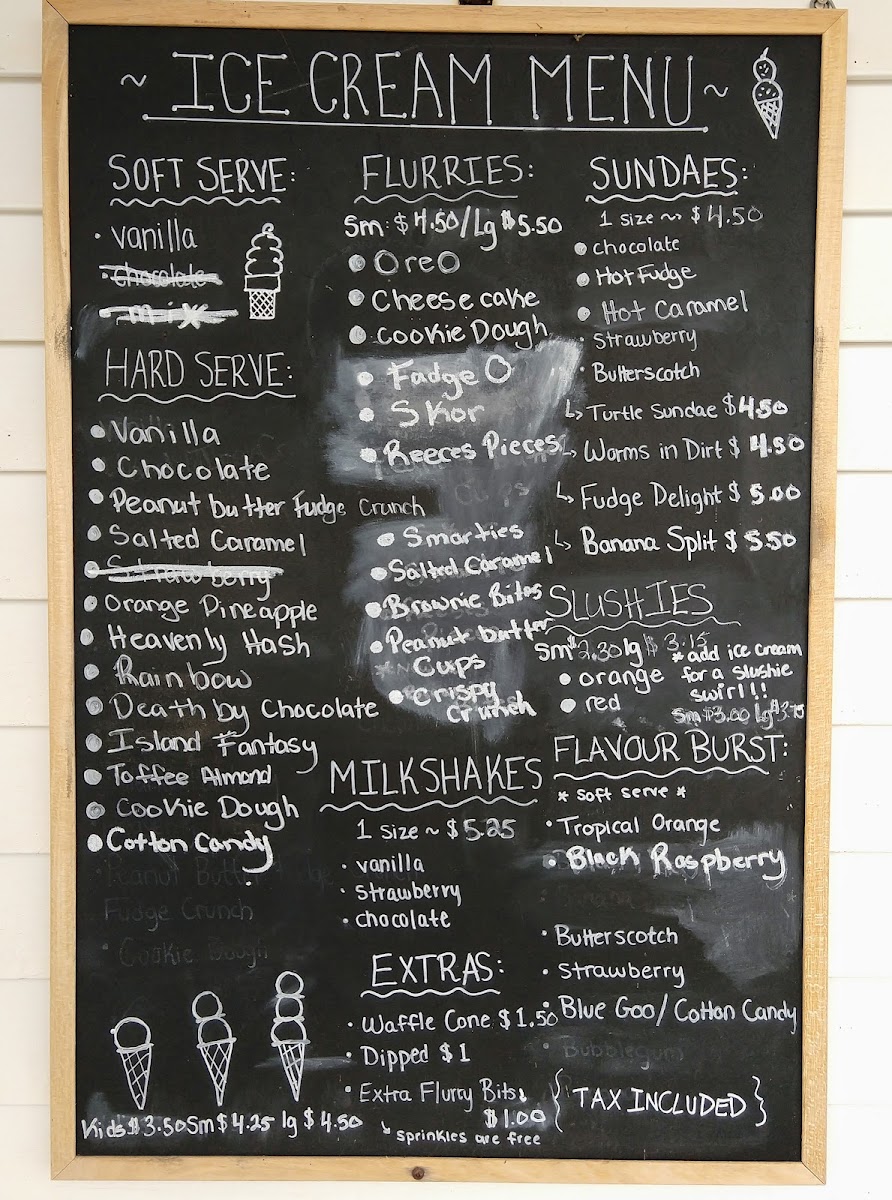 ~ ICE CREAM MENU ~
SOFT SERVE:
• vanilla
• chocolate
• mix
HARD SERVE:
• Vanilla
• Chocolate
• Peanut butter Fudge Crunch
• Salted Caramel
• Strawberry
• Orange Pineapple
• Heavenly Hash
• Rainbow
• Death by Chocolate
• Island Fantasy
• Toffee Almond
• Cookie Dough
• Cotton Candy
Peanut Butter Fudge
Fudge Crunch
• Cookie Dough
Kids $3.50 Sm $4.25 lg $4.50
FLURRIES:
Sm: $4.50/Lg $5.50
• Oreo
• Cheesecake
• Cookie Dough
• Fadge O
• Skor
• Reeces Pieces
Cups
• Smarties
• Salted Caramel
• Brownie Bites
• Peanut butter
Cups
• Crispy
Crunch
MILKSHAKES
1 size ~ $5.25
• vanilla
• Strawberry
• chocolate
EXTRAS:
• Waffle Cone $1.50
• Dipped $1
• Extra Flurry Bits
$1.00
↳ sprinkles are free
SUNDAES:
1 size ~ $4.50
• chocolate
• Hot Fudge
• Hot Caramel
• Strawberry
• Butterscotch
↳ Turtle Sundae $4.50
↳ Worms in Dirt $4.50
↳ Fudge Delight $5.00
↳ Banana Split $5.50
SLUSHIES
Sm $2.30 lg $3.15
• orange
• red
* add ice cream
for a slushie
swirl!!
Sm $3.00 Lg $3.75
FLAVOUR BURST:
* soft serve *
• Tropical Orange
• Black Raspberry
• Butterscotch
• Strawberry
• Blue Goo/Cotton Candy
• Bubblegum
{TAX INCLUDED}